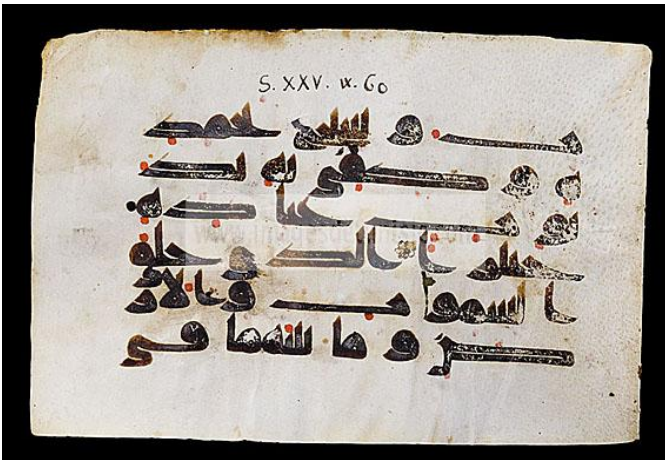 S. XXV. v. 60
ت و سبح بحمد
ه و كفى به بذ
نوب عباده
خبيرا الذي خلق
السموات والأر
ض و ما بينهما في